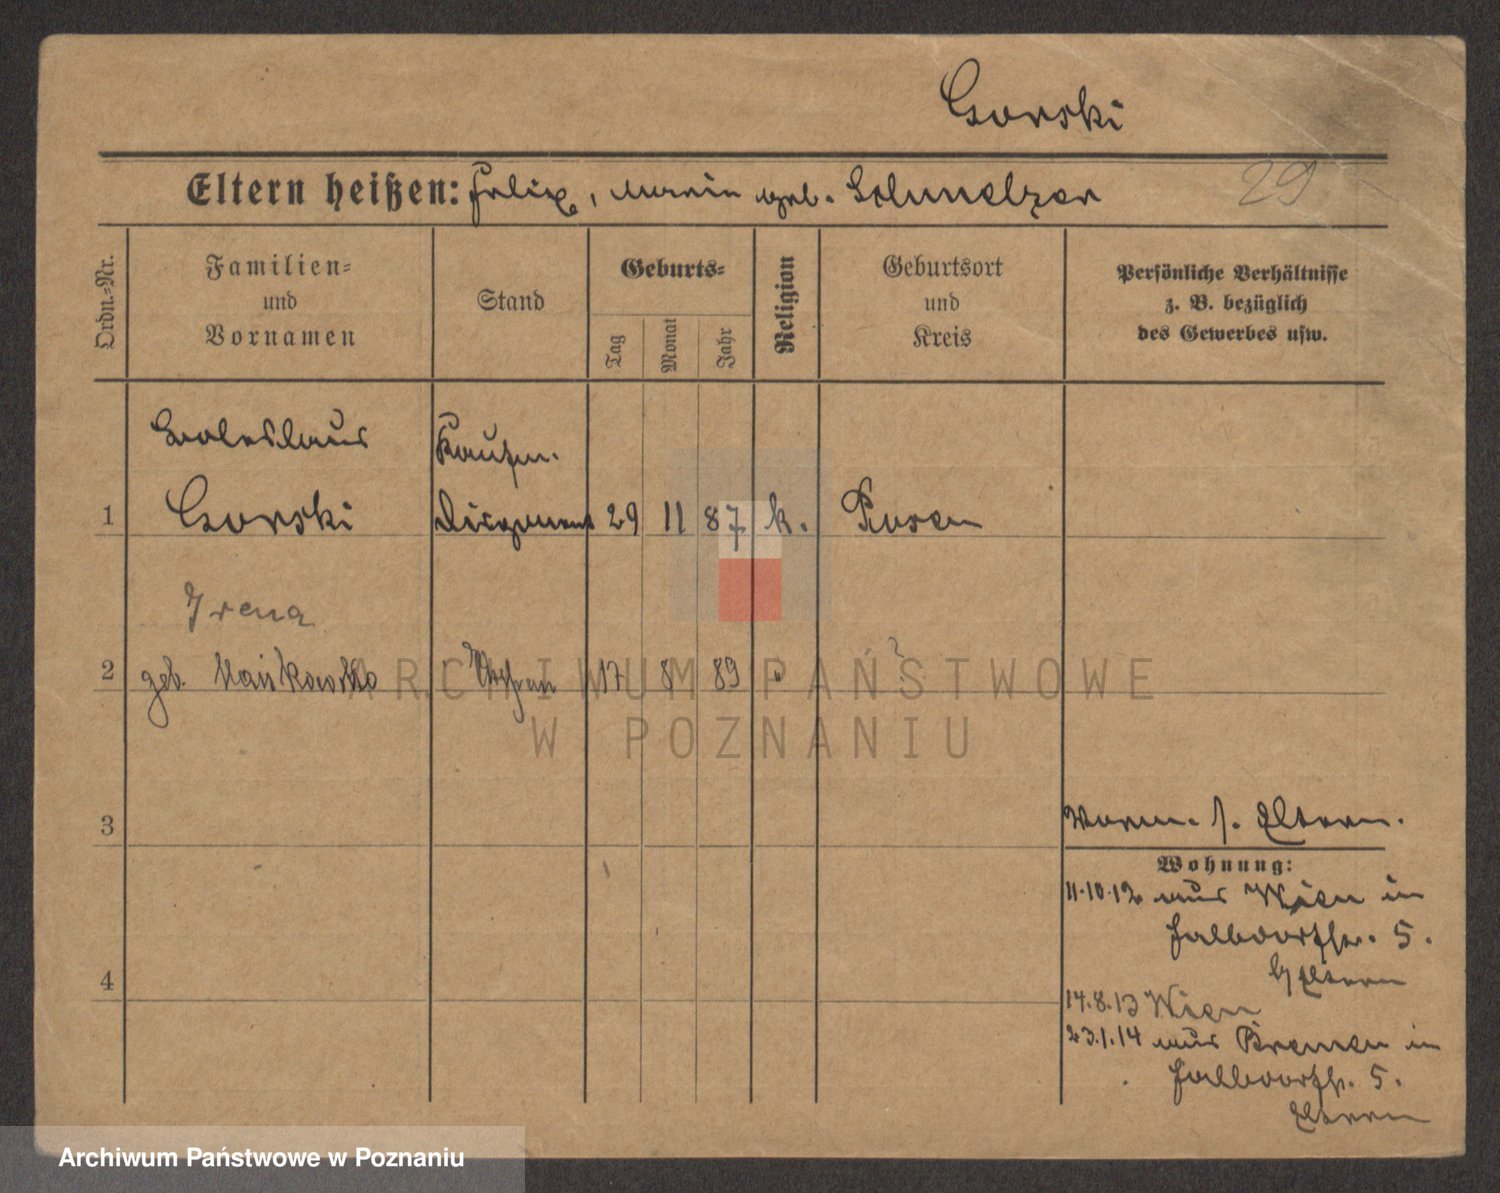 Gorski
Eltern heißen: Felix, Maria geb. Schmelzer
29
Ordn.-Nr.
Familien-
und
Vornamen
Stand
Geburts-
Tag
Monat
Jahr
Religion
Geburtsort
und
Kreis
Persönliche Verhältnisse
z. B. bezüglich
des Gewerbes usw.
Boleslaus
Kaufm.
1 Gorski 29 11 87 k. Posen
Irena
2 geb. 17 8 89
3
Vorm. s. Eltern.
Wohnung:
11.10.12 aus Wien in
Halbdorfstr. 5.
b/ Eltern
4
14.8.13 Wien
23.1.14 aus Bremen in
Halbdorfstr. 5.
Eltern
ARCHIWUM PAŃSTWOWE
W POZNANIU
Archiwum Państwowe w Poznaniu